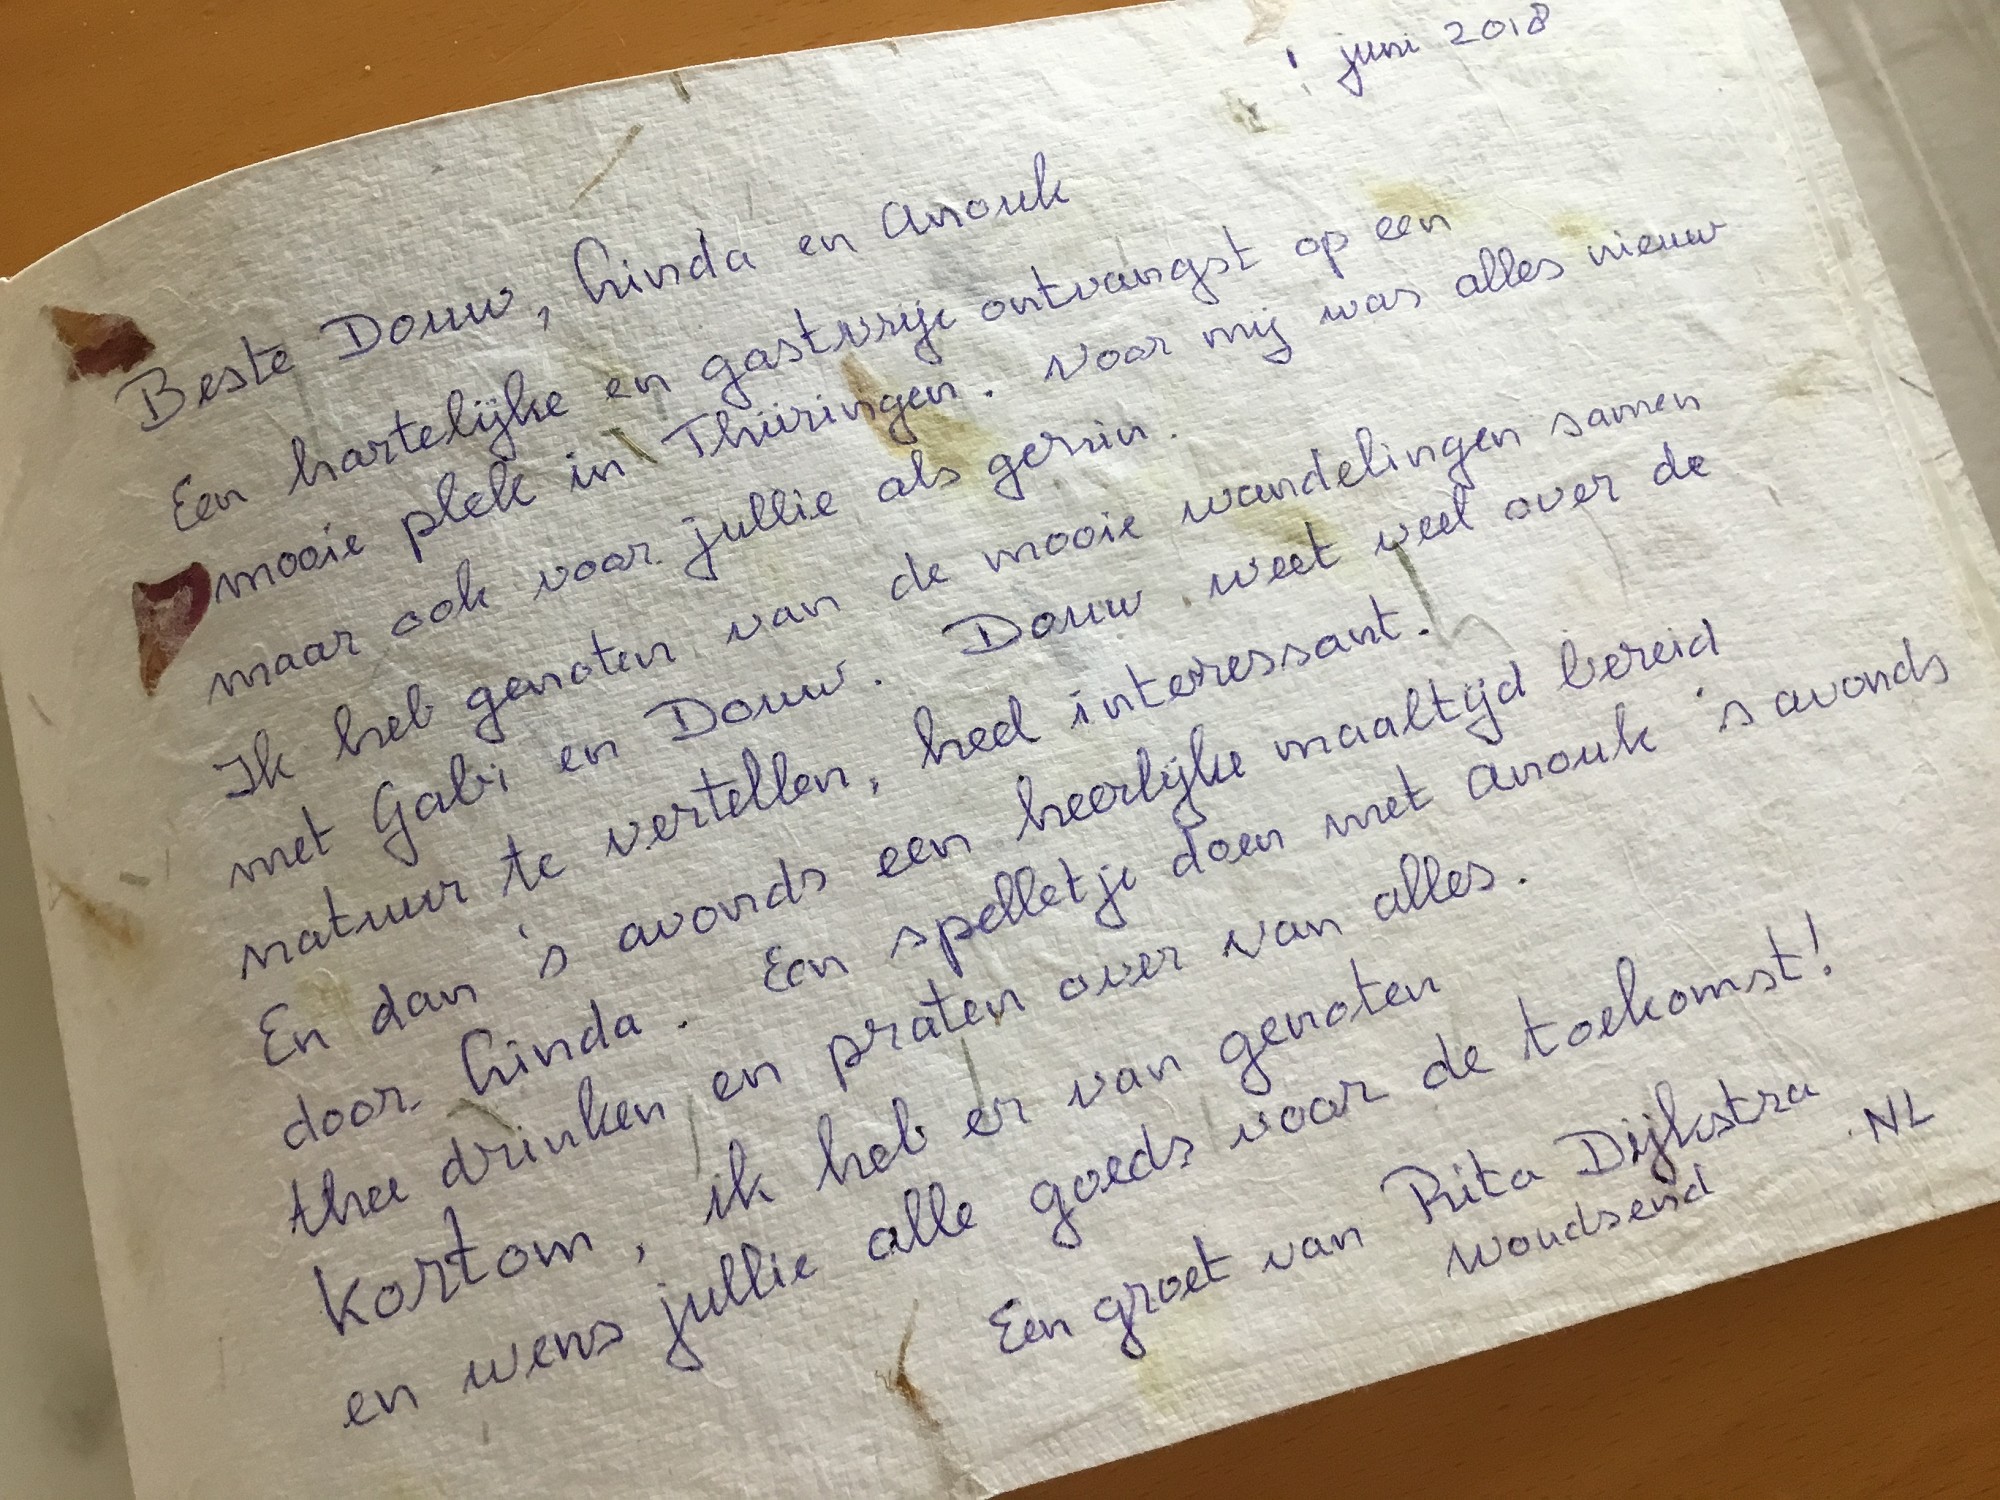 1 juni 2018
Beste Douw, Linda en Anouk
Een hartelijke en gastvrije ontvangst op een
mooie plek in Thüringen. Voor mij was alles nieuw
maar ook voor jullie als gezin.
Ik heb genoten van de mooie wandelingen samen
met Gabi en Douw. Douw weet veel over de
natuur te vertellen, heel interessant.
En dan 's avonds een heerlijke maaltijd bereid
door Linda. Een spelletje doen met Anouk 's avonds
thee drinken en praten over van alles.
Kortom, ik heb er van genoten
en wens jullie alle goeds voor de toekomst!
Een groet van Rita Dijkstra
Woudsend NL